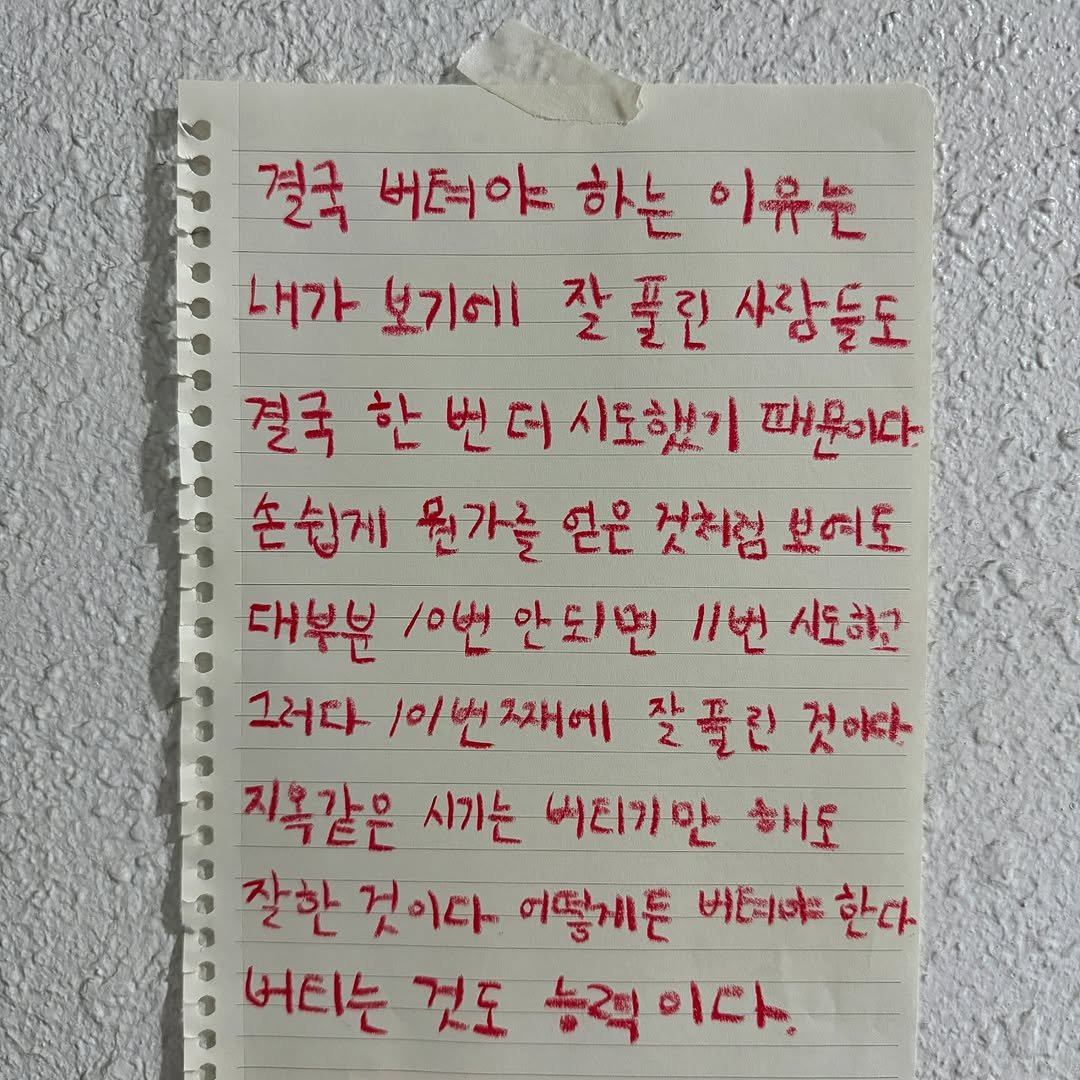 결국 버텨야 하는 이유는
내가 보기에 잘 풀린 사람들도
결국 한 번 더 시도했기 때문이다.
손쉽게 뭔가를 얻은 것처럼 보여도
대부분 10번 안되면 11번 시도하고
그러다 101번째에 잘 풀린 것이다
지옥같은 시기는 버티기만 해도
잘한 것이다 어떻게든 버텨야 한다.
버티는 것도 능력이다.